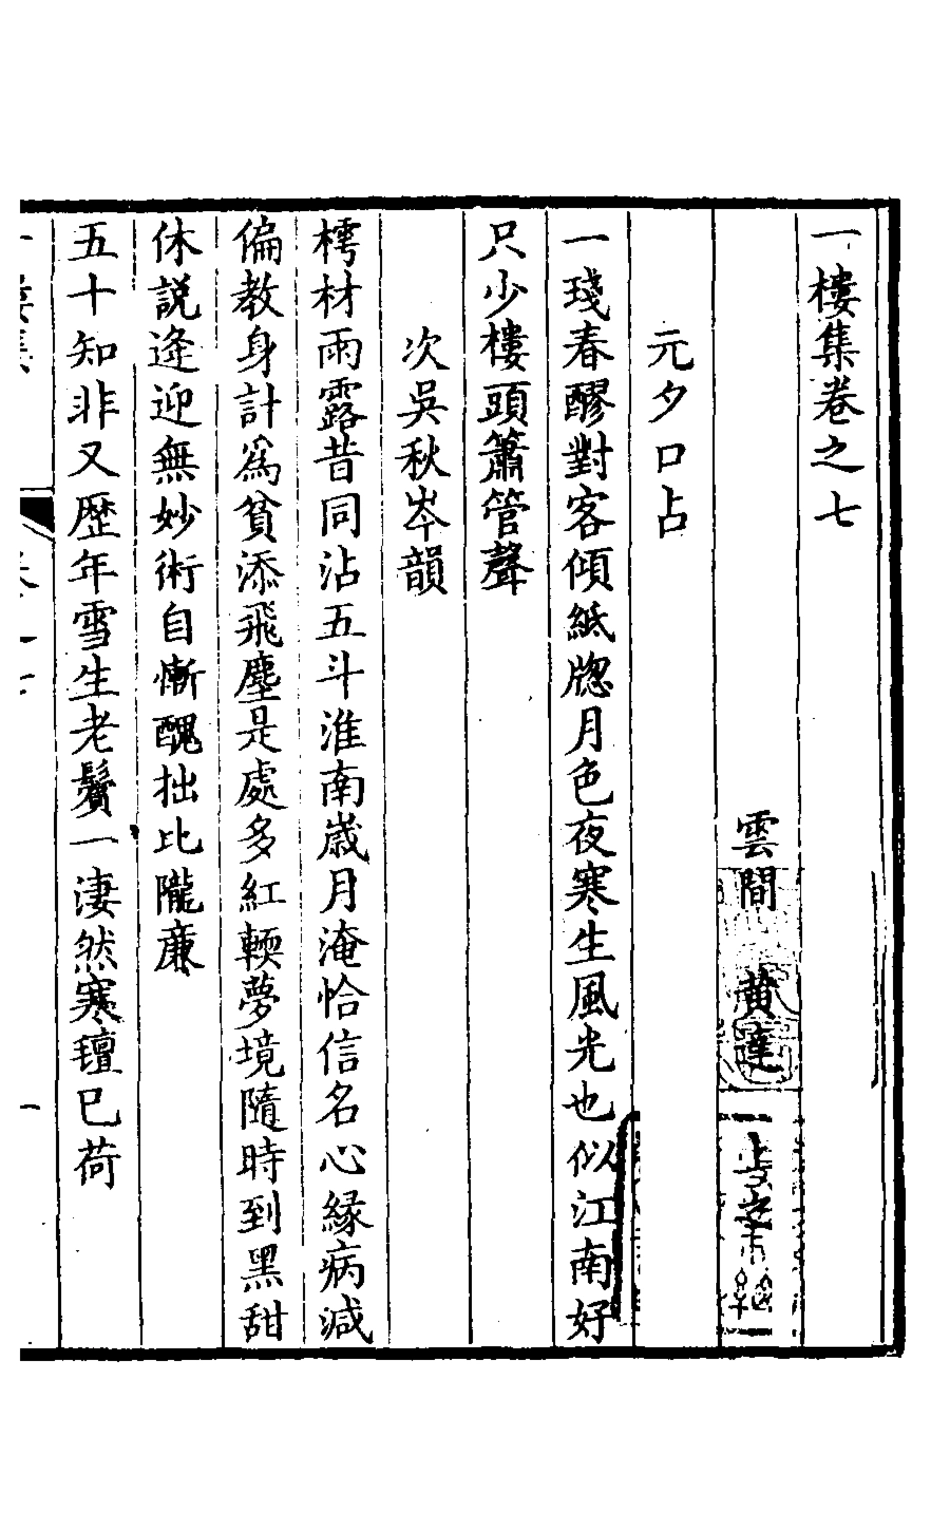 一樓集卷之七
雲間 黄達 上之
元夕口占
一琖春醪對客傾紙牕月色夜寒生風光也似江南好
只少樓頭簫管聲
次吳秋岑韻
樗材雨露昔同沾五斗淮南歲月淹恰信名心緣病減
偏教身計爲貧添飛塵是處多紅輭夢境隨時到黑甜
休説逢迎無妙術自慚醜拙比隴廉
五十知非又歷年雪生老鬢一淒然寒氊已荷